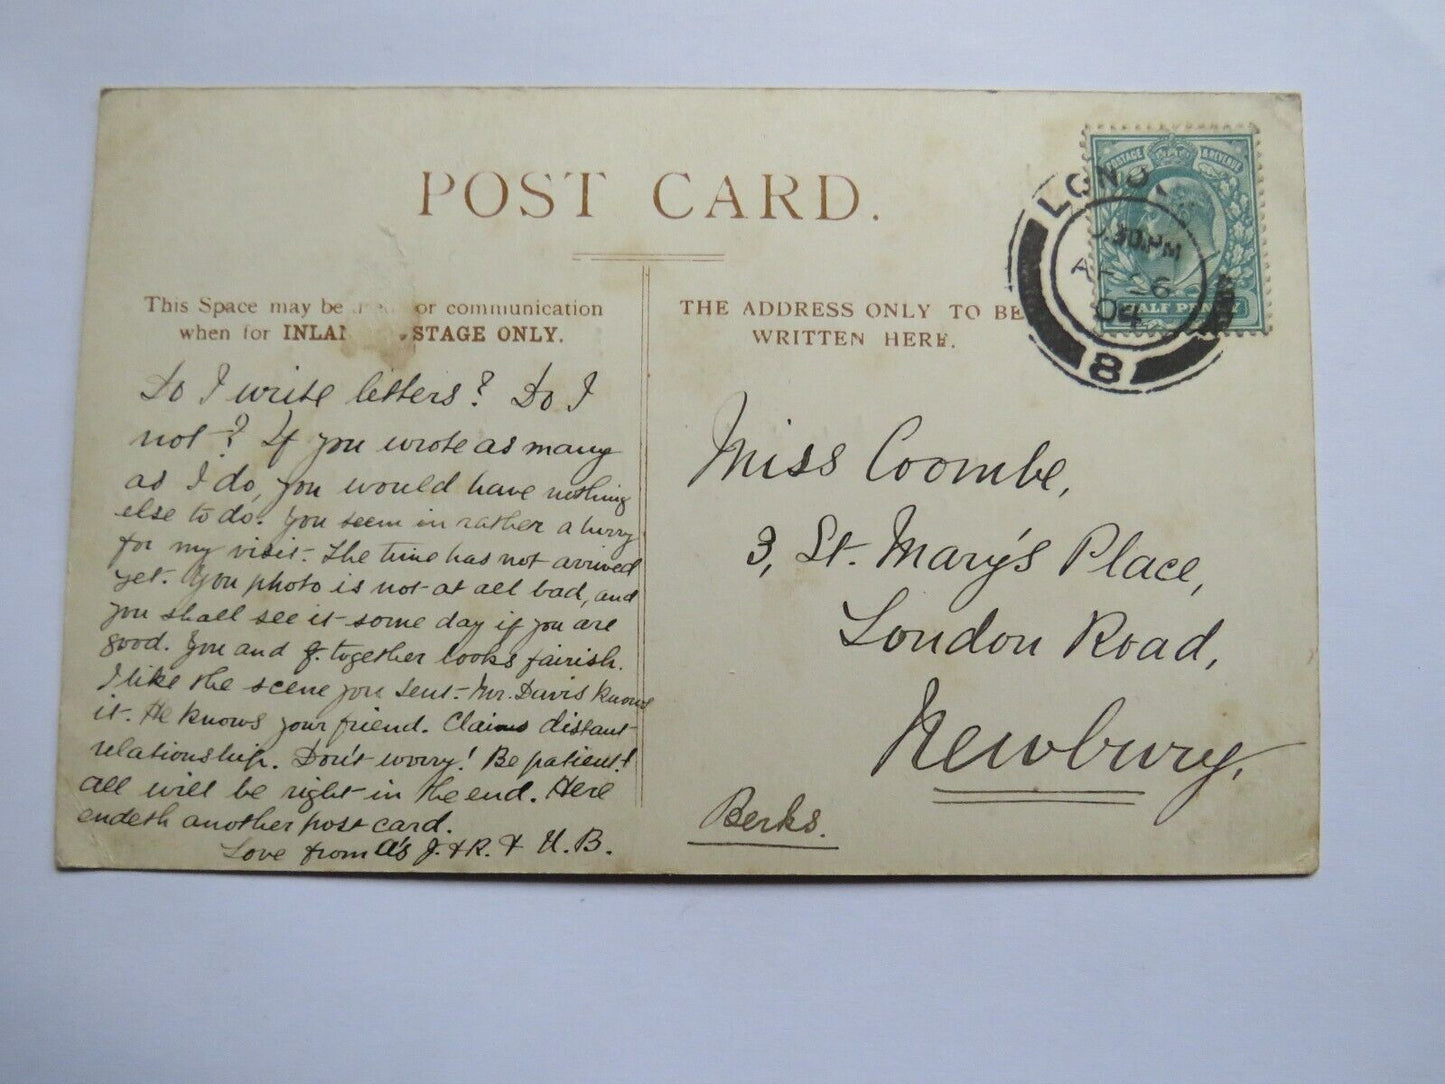 POST CARD.
This Space may be or communication
when for INLAN STAGE ONLY.
Do I write letters? Do I
not? If you wrote as many
as I do, you would have nothing
else to do. You seem in rather a hurry
for my visit – The time has not arrived
yet. You photo is not at all bad, and
you shall see it some day if you are
good. You and J. together looks fairish.
I like the scene you sent – Mr. Davis knows
it. He knows your friend. Claims distant
relationship. Don't worry! Be patient!
all will be right in the end. Here
endeth another post card.
Love from a's J. & R. & U. B.
THE ADDRESS ONLY TO BE
WRITTEN HERE.
Miss Coombe,
3, St. Mary's Place,
London Road,
Newbury,
Berks.
POSTAGE & REVENUE
HALF PENNY
LONDO
.30 PM
AP 6
04
8